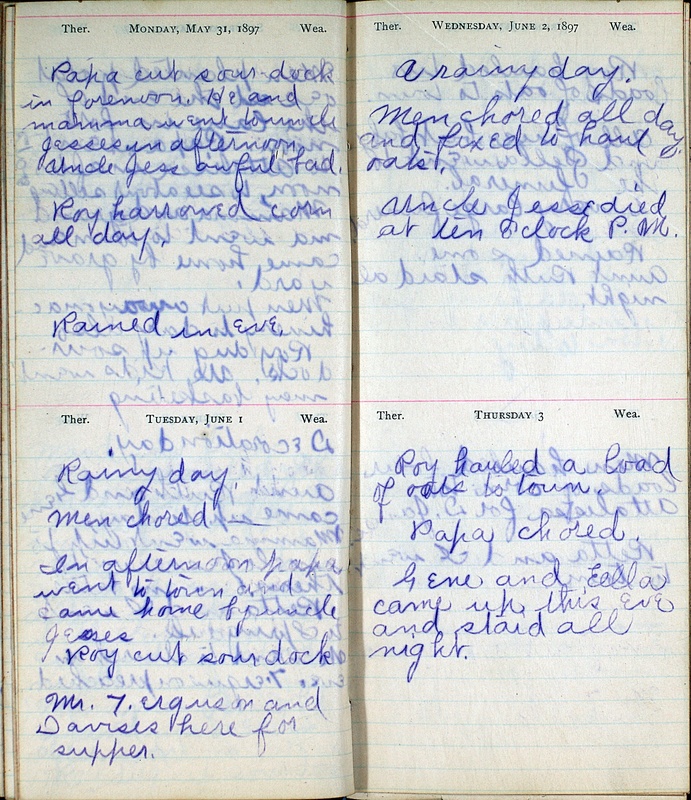 Ther. MONDAY, MAY 31, 1897 Wea.
Papa cut sour dock
in forenoon. He and
mamma went to uncle
Jesses in afternoon.
Uncle Jess awful bad.
Roy harrowed corn
all day.
Rained in eve.
Ther. TUESDAY, JUNE 1 Wea.
Rainy day.
Men chored —
In afternoon papa
went to town and
came home by uncle
Jesses
Roy cut sour dock
Mr. Ferguson and
Davises here for
supper.
Ther. WEDNESDAY, JUNE 2, 1897 Wea.
A rainy day.
Men chored all day
and fixed to haul
oats.
Uncle Jesse died
at ten O'clock P.M.
Ther. THURSDAY 3 Wea.
Roy hauled a load
of oats to town.
Papa chored.
Gene and Eella
came up this eve
and staid all
night.